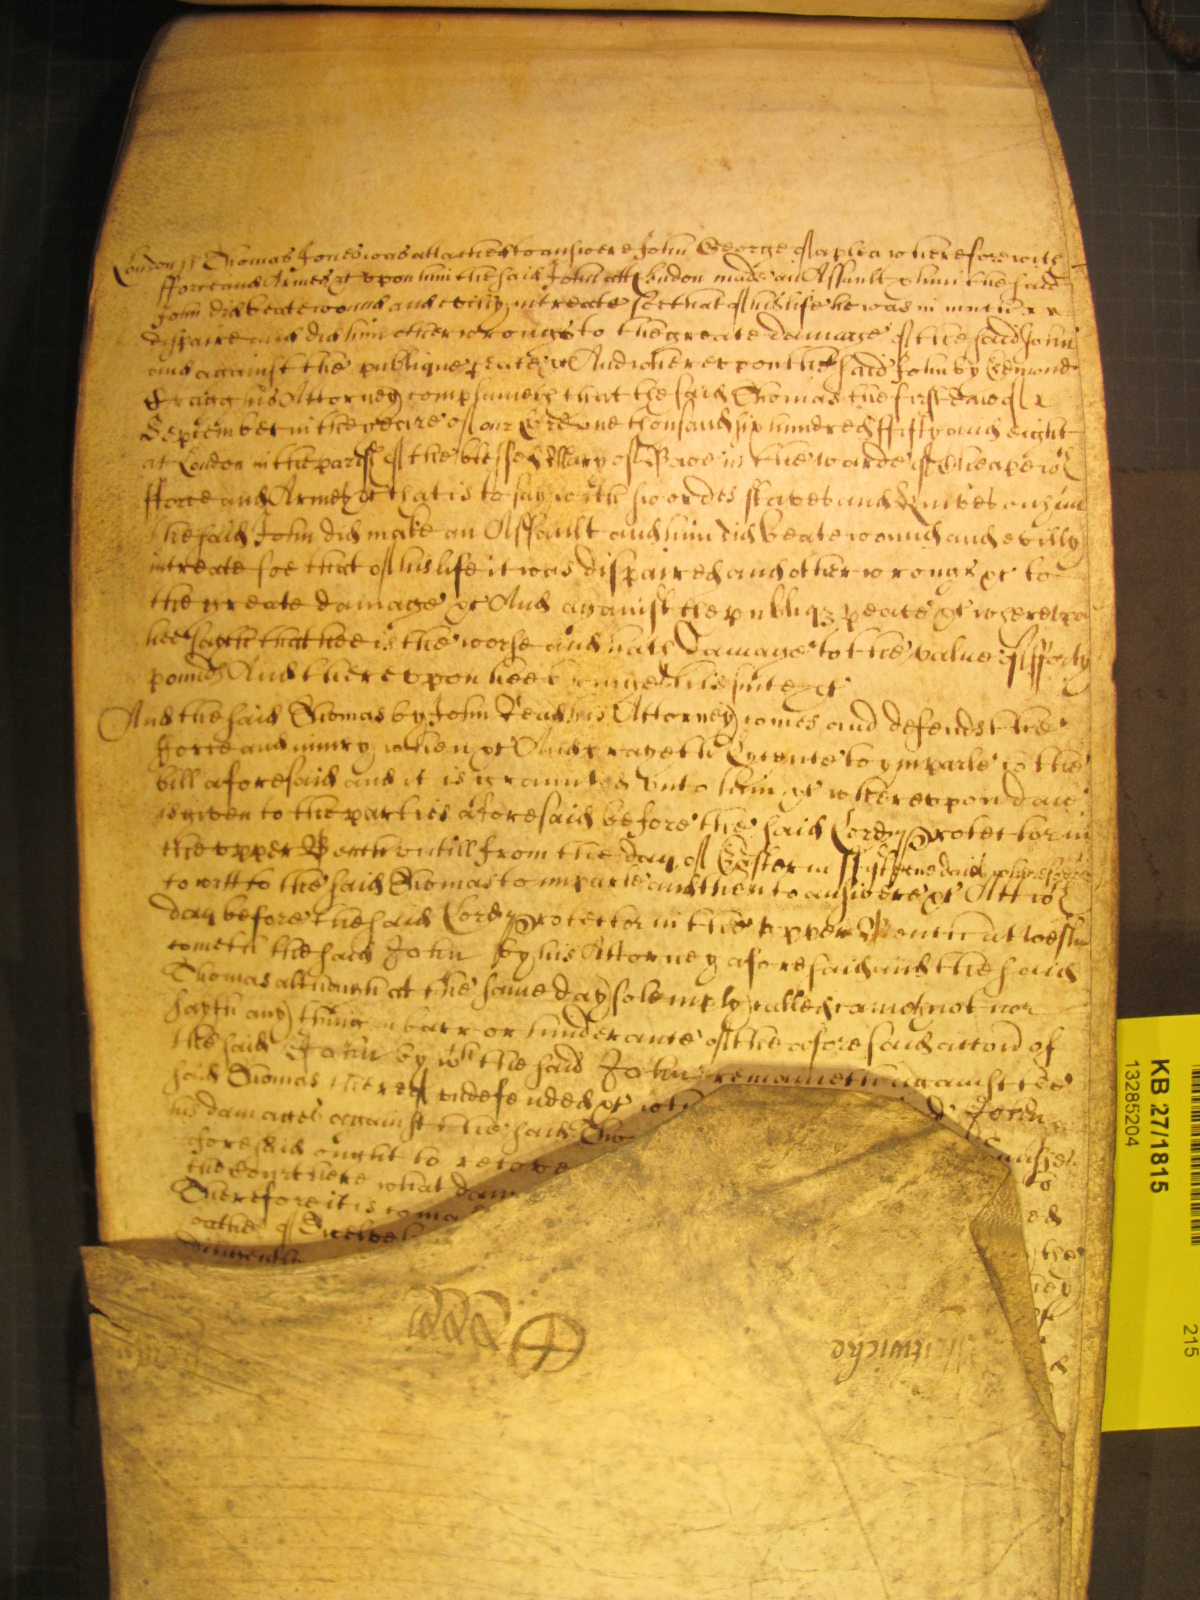 London ss Thomas Jones was attached to answere John George of a plea wherefore with
fforce and Armes &c vpon him the said John att London made an Assault & him the said
John did beate wound and evilly intreate soe that of his life he was in
dispaire and did him other wrongs to the greate damage of the said John
and against the publique peace &c And wherevpon the said John by Edmond
his Attorney complaineth that the said Thomas the first daie of
September in the yeare of our Lord one thousand six hundred ffifty and eight
at London in the parish of the blessed Mary of Bowe in the warde of Cheape wth
fforce and Armes &c that is to say with swordes staves and knives on him
the said John did make an Assault and him did beate wound and evilly
intreate soe that of his life it was dispaired and other wrongs &c to
the greate damage &c And against the publiq peace &c wherevpon
hee sayth that hee is the worse and hath damage to the value of fforty
pounds And therevpon hee bringeth his suite &c
And the said Thomas by John his Attorney comes and defends the
fforce and iniury when &c And prayeth Lycence to imparle to the
bill aforesaid and it is graunted vnto him &c wherevpon daie
is given to the parties aforesaid before the said Lord Protector in
the vpper Bench vntill from the day of Easter in
to witt to the said Thomas to imparle and then to answere &c Att wch
day before the said Lord Protector in the vpper Bench at Westmr
cometh the said John by his Attorney aforesaid and the said
Thomas although at the same day solemply called came not nor
sayth any thing in barr or hinderance of the aforesaid accon of
the said John by wch the said John remaineth against the
said Thomas thereof vndefended &c John
his damages against the said Tho
foresaid ought to recove
the Court here what dam
Therefore it is coma
oathe of Twelve
diligently
KB 27/1815
13285204
215